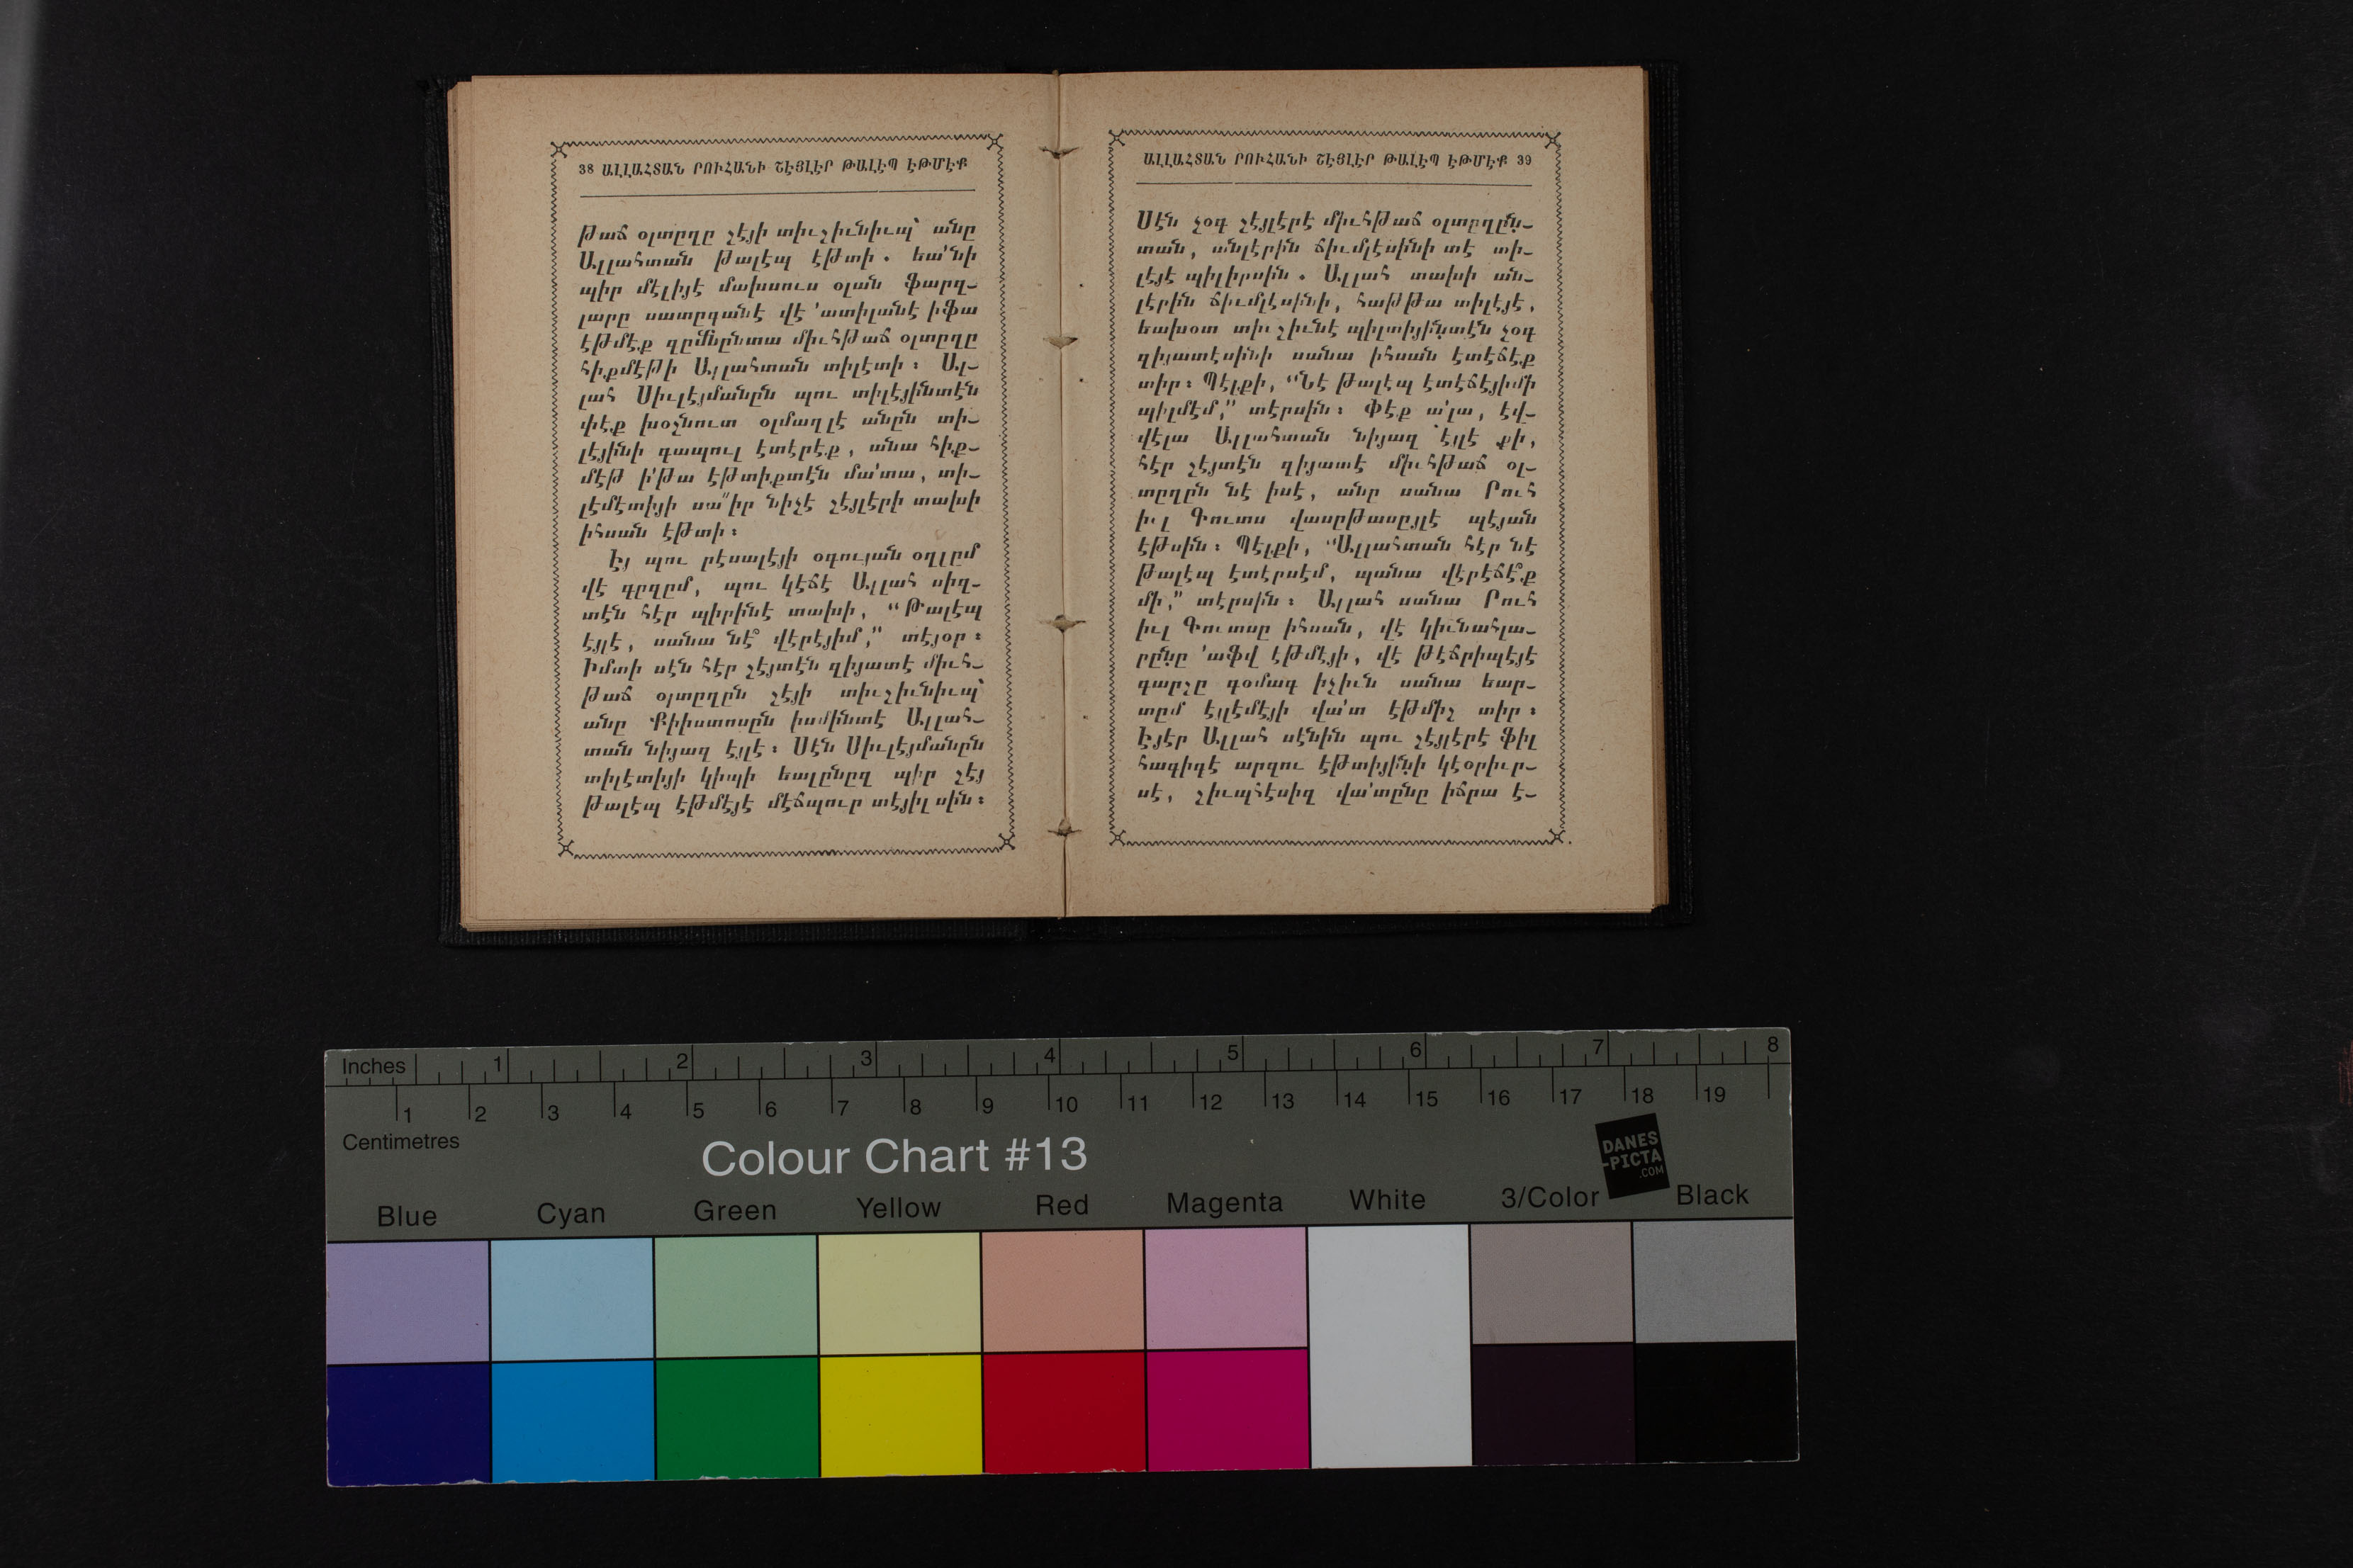 38 ԱԼԼԱՀՏԱՆ ՐՈՒՀԱՆԻ ՇԷՅԼԷՐ ԹԱԼԷՊ ԷԹՄԷՔ
թաճ օլտըղը շէյի տիւշիւնիւպ՝ անը
Ալլահտան թալէպ էթտի. եա՛նի
պիր մէլիյէ մախսուս օլան ֆարզ-
լարը սատըգանէ վէ ՚ատիլանէ իֆա
էթմէք զըմնընտա միւհթաճ օլտըղը
հիքմէթի Ալլահտան տիլէտի։ Ալ-
լահ Սիւլէյմանըն պու տիլէյինտէն
փէք խօշնուտ օլմաղլէ անըն տի-
լէյինի գապուլ էտէրէք, անա հիք-
մէթ ի՛թա էթտիքտէն մա՛տա, տի-
լէմէտիյի սա՛՛իր նիչէ շէյլէրի տախի
իհսան էթտի։
Էյ պու րէսալէյի օգույան օղլըմ
վէ գըզըմ, պու կէճէ Ալլահ սիզ-
տէն հէր պիրինէ տախի, “Թալէպ
էյլէ, սանա նէ՞ վէրէյիմ,” տէյօր։
Իմտի սէն հէր շէյտէն զիյատէ միւհ-
թաճ օլտըղըն շէյի տիւշիւնիւպ՝
անը Քրիստոսըն իսմինտէ Ալլահ-
տան նիյազ էյլէ։ Սէն Սիւլէյմանըն
տիլէտիյի կիպի եալընըզ պիր շէյ
թալէպ էթմէյէ մէճպուր տէյիլսին։
ԱԼԼԱՀՏԱՆ ՐՈՒՀԱՆԻ ՇԷՅԼԷՐ ԹԱԼԷՊ ԷԹՄԷՔ 39
Սէն չօգ շէյլէրէ միւհթաճ օլտըղըն-
տան, անլէրին ճիւմլէսինի տէ տի-
լէյէ պիլիրսին. Ալլահ տախի ան-
լէրին ճիւմլէսինի, հաթթա տիլէյէ,
եախօտ տիւշիւնէ պիլտիյինտէն չօգ
զիյատէսինի սանա իհսան էտէճէք
տիր։ Պէլքի, “Նէ թալէպ էտէճէյիմի
պիլմէմ,” տէրսին։ Փէք ա՛լա, էվ-
վէլա Ալլահտան նիյազ էյլէ քի,
հէր շէյտէն զիյատէ միւհթաճ օլ-
տըղըն նէ իսէ, անը սանա Րուհ
իւլ Գուտս վասըթասըյլէ պէյան
էթսին։ Պէլքի, “Ալլահտան հէր նէ
թալէպ էտէրսէմ, պանա վէրէճէ՞ք
մի,” տէրսին։ Ալլահ սանա Րուհ
իւլ Գուտսը իհսան, վէ կիւնահլա-
րընը ՚աֆվ էթմէյի, վէ թէճրիպէյէ
գարշը գօմագ իչիւն սանա եար-
տըմ էյլէմէյի վա՛տ էթմիշ տիր։
Էյէր Ալլահ սէնին պու շէյլէրէ ֆիլ
հագիգէ արզու էթտիյինի կէօրիւր-
սէ, շիւպհէսիզ վա՛տընը իճրա է-
Inches 1 2 3 4 5 6 7 8
1 2 3 4 5 6 7 8 9 10 11 12 13 14 15 16 17 18 19
Centimetres
Colour Chart #13
DANES
-PICTA
.COM
Blue Cyan Green Yellow Red Magenta White 3/Color Black